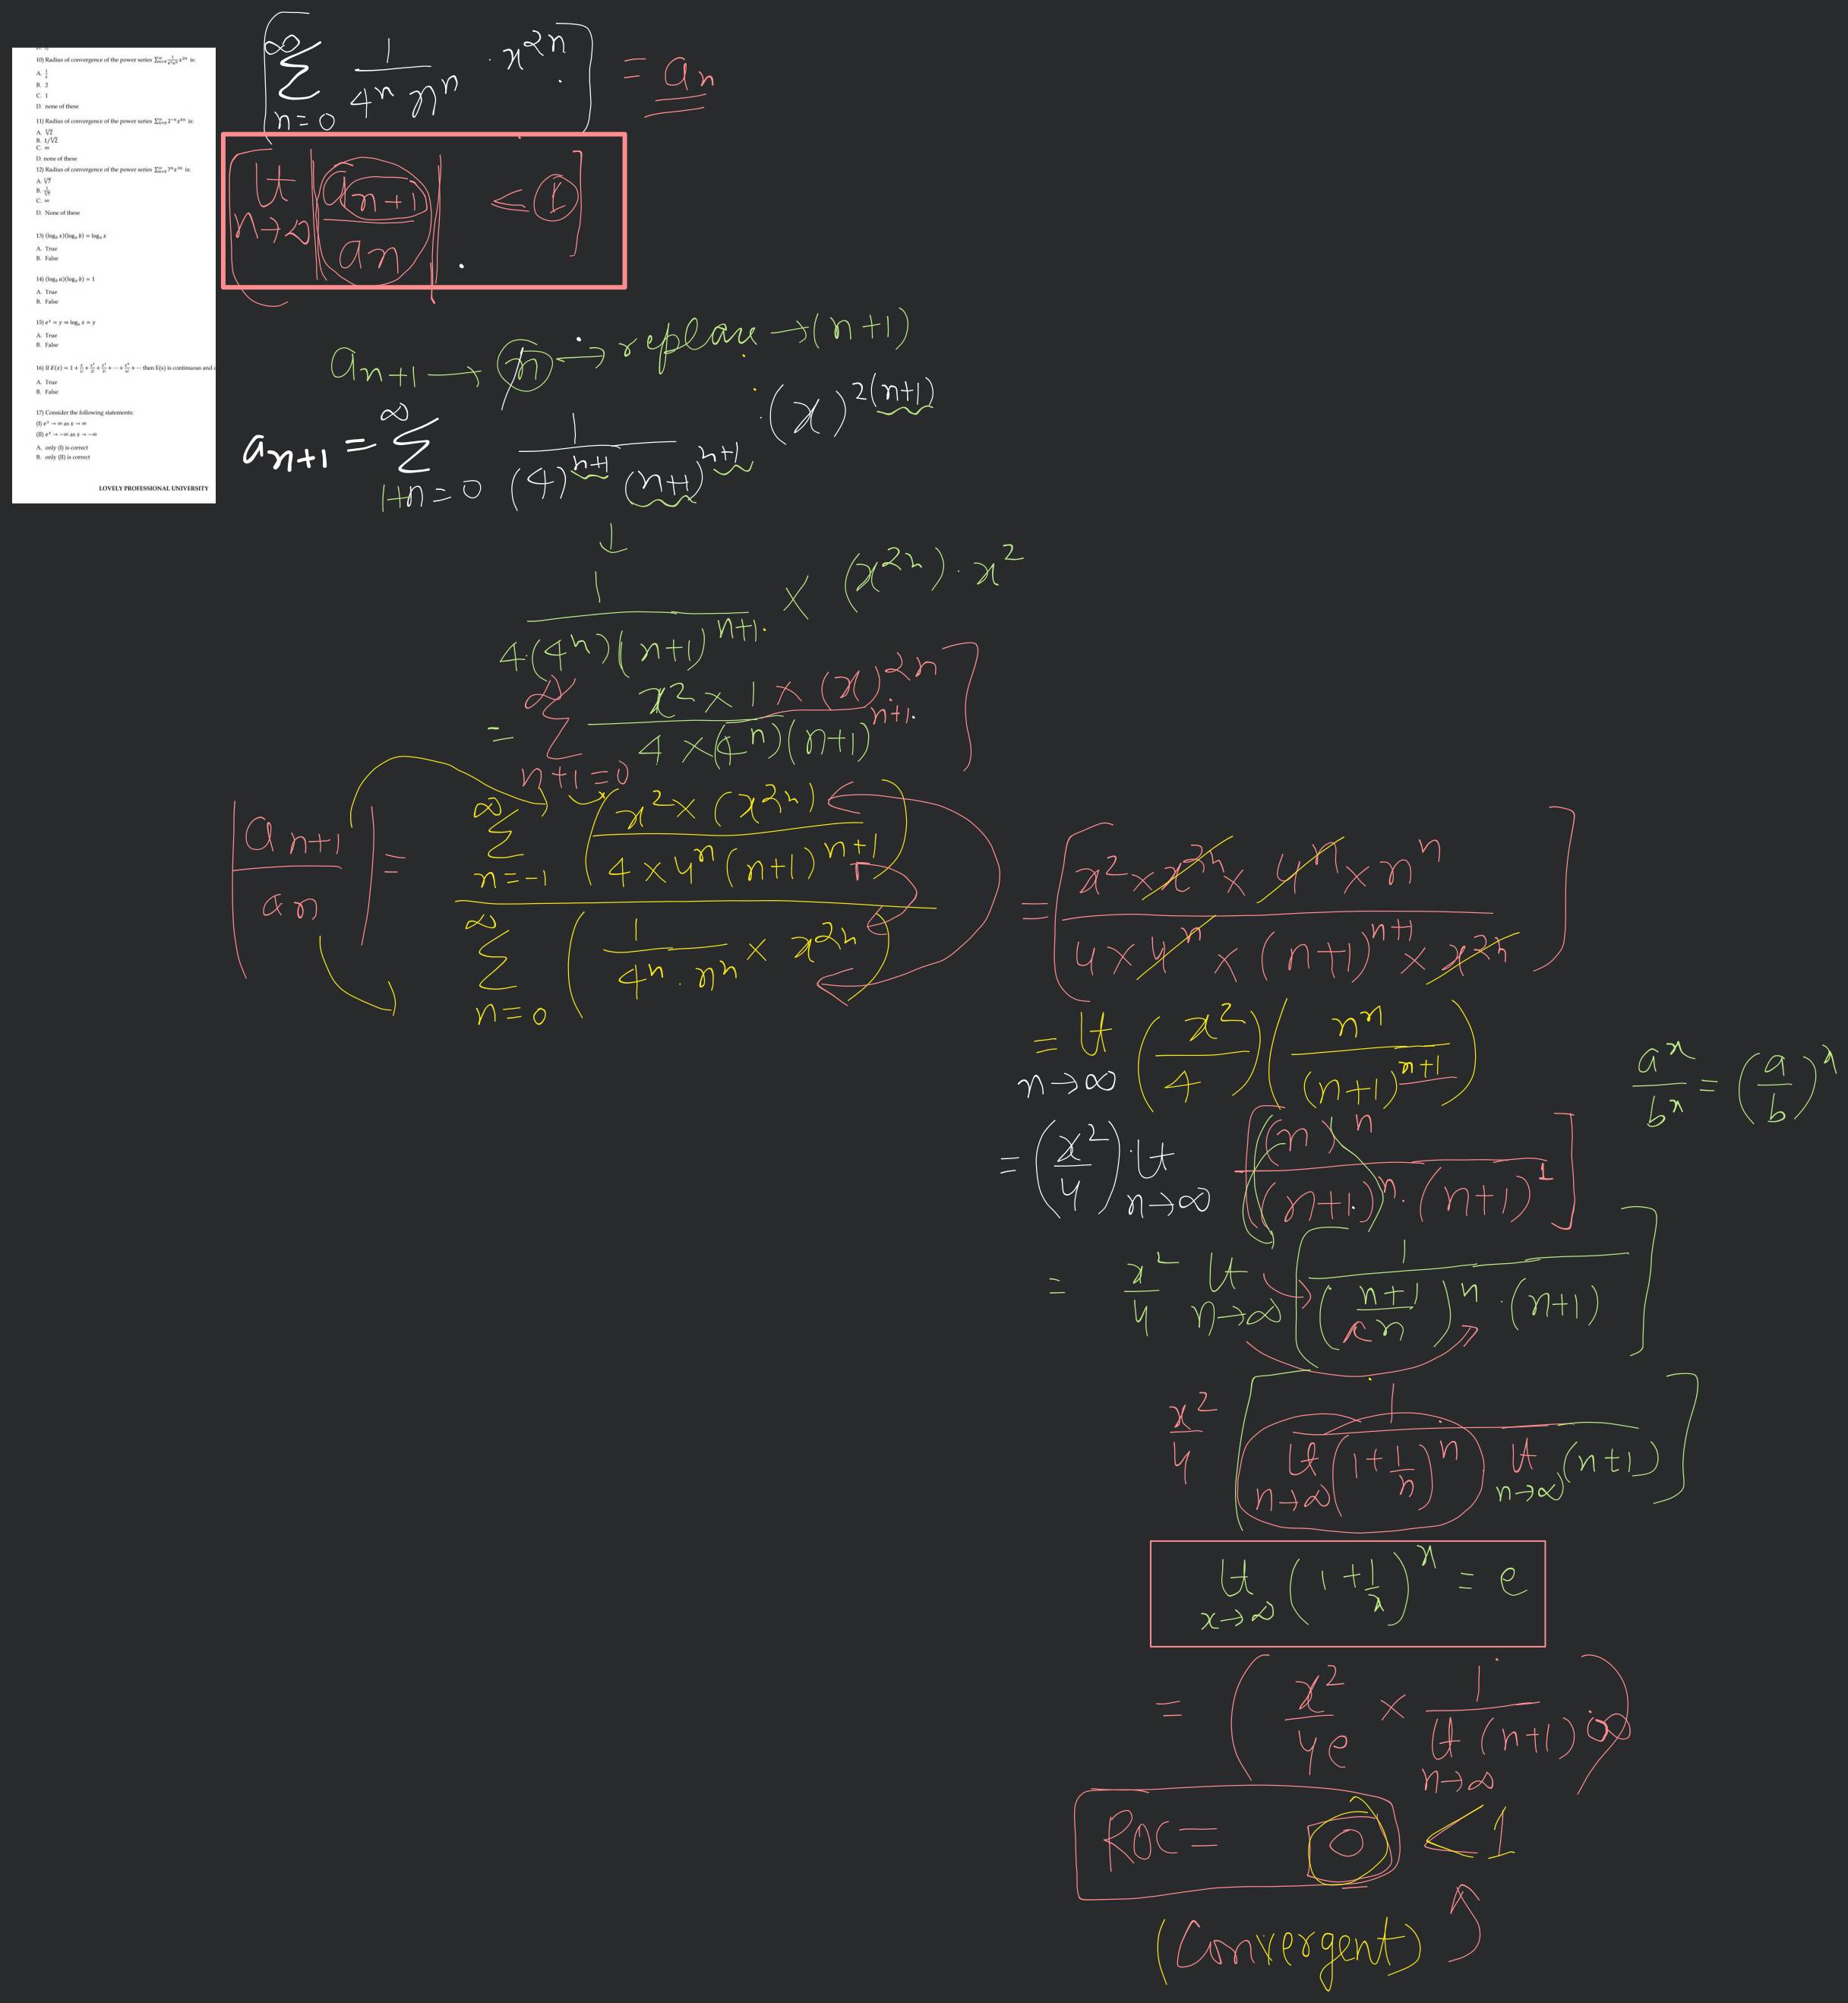 10) Radius of convergence of the power series is:
A.
B. 2
C. 1
D. none of these
11) Radius of convergence of the power series ∑ 2⁻ⁿx⁴ⁿ is:
A. ∜2
B. 1/∜2
C. ∞
D. none of these
12) Radius of convergence of the power series is:
C. ∞
D. None of these
13) (log_b x)(log_a b) = log_a x
A. True
B. False
14) (log_b a)(log_a b) = 1
A. True
B. False
15) eˣ = y ⇒ log_e x = y
A. True
B. False
then E(x) is continuous and
A. True
B. False
17) Consider the following statements:
(I) eˣ → ∞ as x → ∞
(II) eˣ → −∞ as x → −∞
A. only (I) is correct
B. only (II) is correct
LOVELY PROFESSIONAL UNIVERSITY
[∑_{n=0}^{∞} 1/(4ⁿ nⁿ) · x²ⁿ] = aₙ
[Lt_{n→∞} |aₙ₊₁/aₙ| < 1]
aₙ₊₁ → n → replace → (n+1)
aₙ₊₁ = ∑_{1+n=0}^{∞} 1/((4)ⁿ⁺¹ (n+1)ⁿ⁺¹) · (x)^{2(n+1)}
↓
1/(4·(4ⁿ)(n+1)ⁿ⁺¹) × (x²ⁿ)·x²
= ∑_{n+1=0}^{∞} (x² × 1 × (x)²ⁿ)/(4×(4ⁿ)(n+1)ⁿ⁺¹)]
|aₙ₊₁/aₙ| = ∑_{n=-1}^{∞} (x² × (x²ⁿ)/(4×4ⁿ(n+1)ⁿ⁺¹)) / ∑_{n=0}^{∞} (1/(4ⁿ·nⁿ) × x²ⁿ)
= [(x² × x²ⁿ × 4ⁿ × nⁿ)/(4 × 4ⁿ × (n+1)ⁿ⁺¹ × x²ⁿ)]
= Lt_{n→∞} (x²/4)(nⁿ/(n+1)ⁿ⁺¹)
aˣ/bˣ = (a/b)ˣ
= (x²/4) · Lt_{n→∞} [(n)ⁿ/((n+1)ⁿ·(n+1)¹)]
= x²/4 Lt_{n→∞} [1/(((n+1)/n)ⁿ·(n+1))]
x²/4 [1/(Lt_{n→∞}(1+1/n)ⁿ Lt_{n→∞}(n+1))]
Lt_{x→∞} (1+1/x)ˣ = e
= (x²/4e × 1/(Lt_{n→∞}(n+1))) ∞
ROC = 0 < 1
(Convergent)